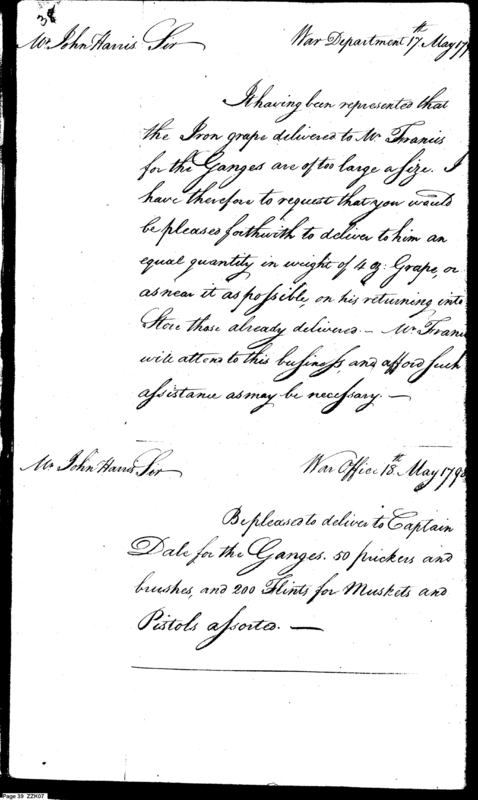 38
Mr. John Harris Sir War Department 17th May 179
It having been represented that
the Iron grape delivered to Mr. Francis
for the Ganges are of too large a size. I
have therefore to request that you would
be pleased forthwith to deliver to him an
equal quantity in weight of 4 oz: Grape, or
as near it as possible, on his returning into
Store those already delivered. — Mr. Francis
will attend to this business, and afford such
assistance as may be necessary. —
Mr. John Harris Sir War Office 18th May 1798
Be pleased to deliver to Captain
Dale for the Ganges. 50 prickers and
brushes, and 200 Flints for Muskets and
Pistols assorted. —
Page 39 ZZK07